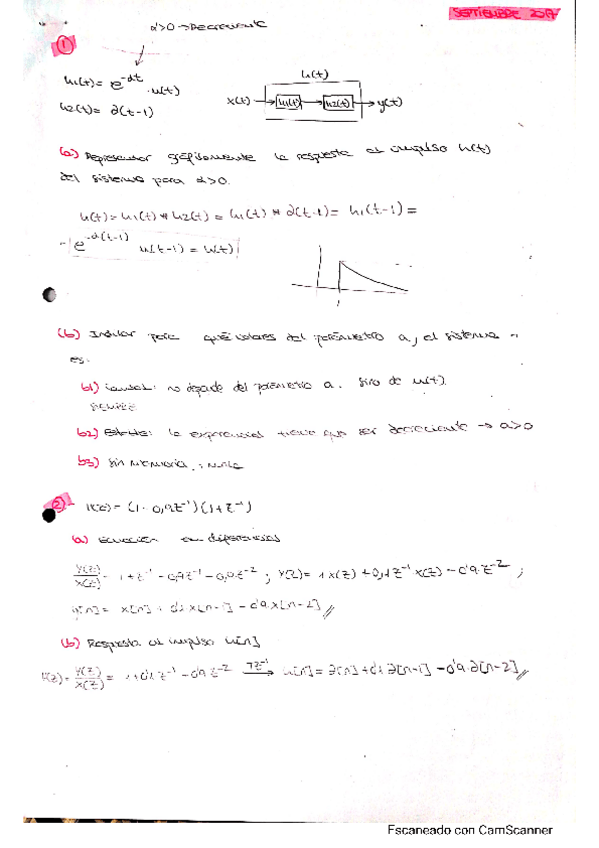 SEPTIEMBRE 2017
α>0 → Decreciente
①
h1(t)= e^-αt · u(t)
h2(t)= ∂(t-1)
h(t)
x(t) → h1(t) → h2(t) → y(t)
(a) Representar gráficamente la respuesta al impulso h(t)
del sistema para α>0.
h(t)= h1(t) * h2(t) = h1(t) * ∂(t-1) = h1(t-1) =
= e^-α(t-1) u(t-1) = h(t)
1
(b) Indicar para qué valores del parámetro a, el sistema
es:
b1) Causal: no depende del parámetro a. sino de u(t).
SIEMPRE
b2) Estable: la exponencial tiene que ser decreciente → a>0
b3) Sin memoria: nunca
②- H(z)= (1-0,9z^-1)(1+z^-1)
(a) Ecuación en diferencias
Y(z)/X(z) = 1+z^-1 -0,9z^-1 -0,9z^-2 ; Y(z)= 1x(z)+0,1z^-1 x(z) -0'9z^-2 ;
y[n]= x[n] + 0'1 x[n-1] -0'9 x[n-2] //
(b) Respuesta al impulso h[n]
H(z)= Y(z)/X(z) = 1+0'1z^-1 -0'9z^-2 → h[n]= ∂[n]+0'1∂[n-1] -0'9·∂[n-2] //
Escaneado con CamScanner